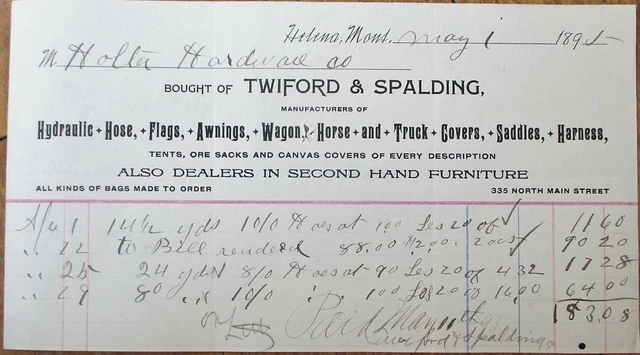 Helena, Mont. May 1 1895
M Holter Hardware Co
BOUGHT OF TWIFORD & SPALDING,
MANUFACTURERS OF
Hydraulic + Hose, + Flags, + Awnings, + Wagon, + Horse + and + Truck + Covers, + Saddles, + Harness,
TENTS, ORE SACKS AND CANVAS COVERS OF EVERY DESCRIPTION
ALSO DEALERS IN SECOND HAND FURNITURE
ALL KINDS OF BAGS MADE TO ORDER 335 NORTH MAIN STREET
1 14 1/2 yds 10/0 Hose at 100 Les 20 of ✓ 11 60
" 22 to Bill rendered 88.00 ✓ 90 20
" 25 24 yds 8/0 Hose at 90 Les 20 of 4 32 17 28
" 29 80 " 10/0 " 100 Les 20 of 16.00 64 00
183.08
Paid May
Twiford & Spalding